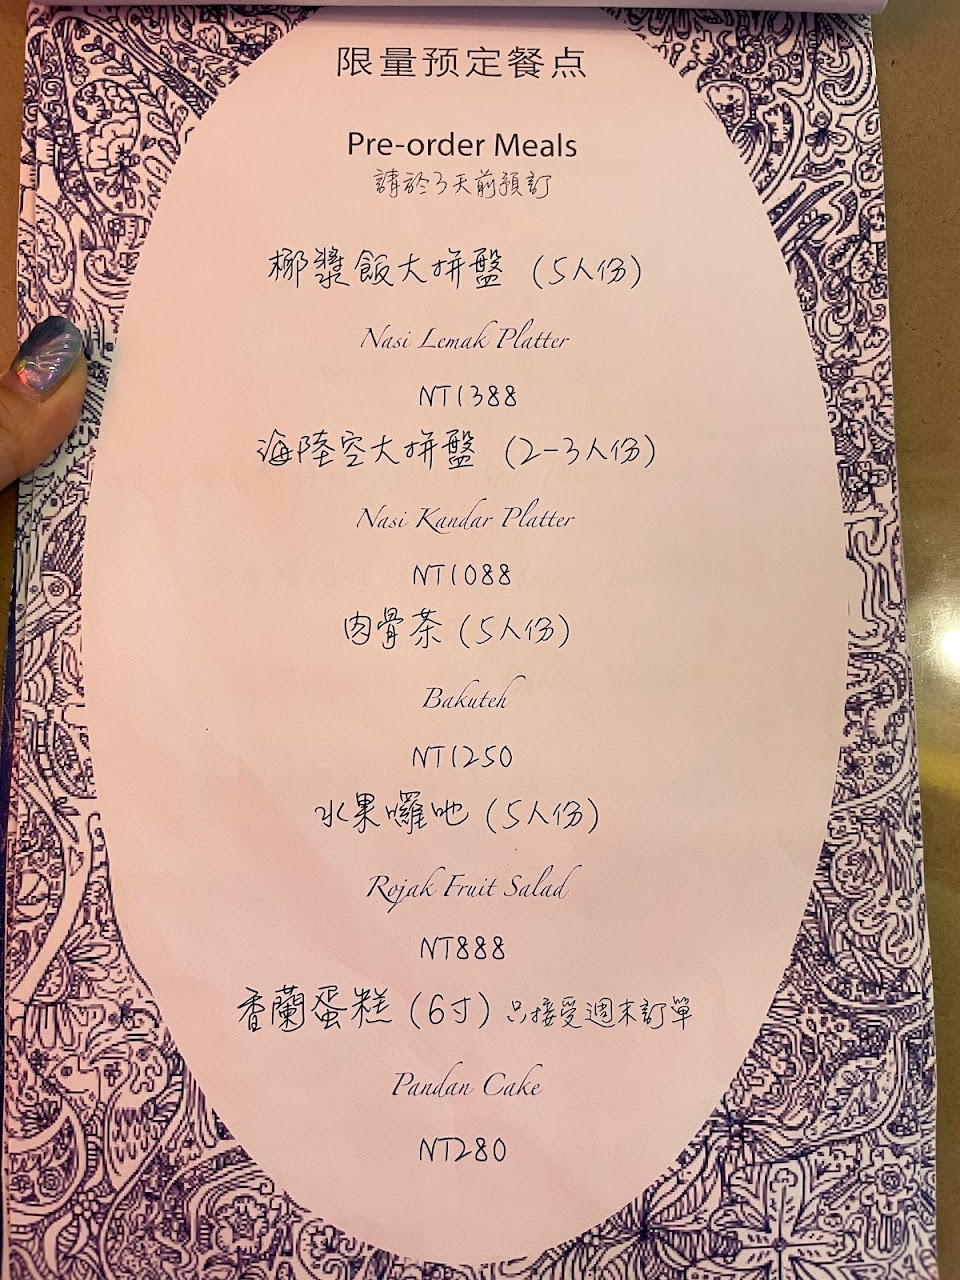 限量预定餐点
Pre-order Meals
請於3天前預訂
椰漿飯大拼盤 (5人份)
Nasi Lemak Platter
NT1388
海陸空大拼盤 (2-3人份)
Nasi Kandar Platter
NT1088
肉骨茶 (5人份)
Bakuteh
NT1250
水果囉吔 (5人份)
Rojak Fruit Salad
NT888
香蘭蛋糕 (6寸) 只接受週末訂單
Pandan Cake
NT280